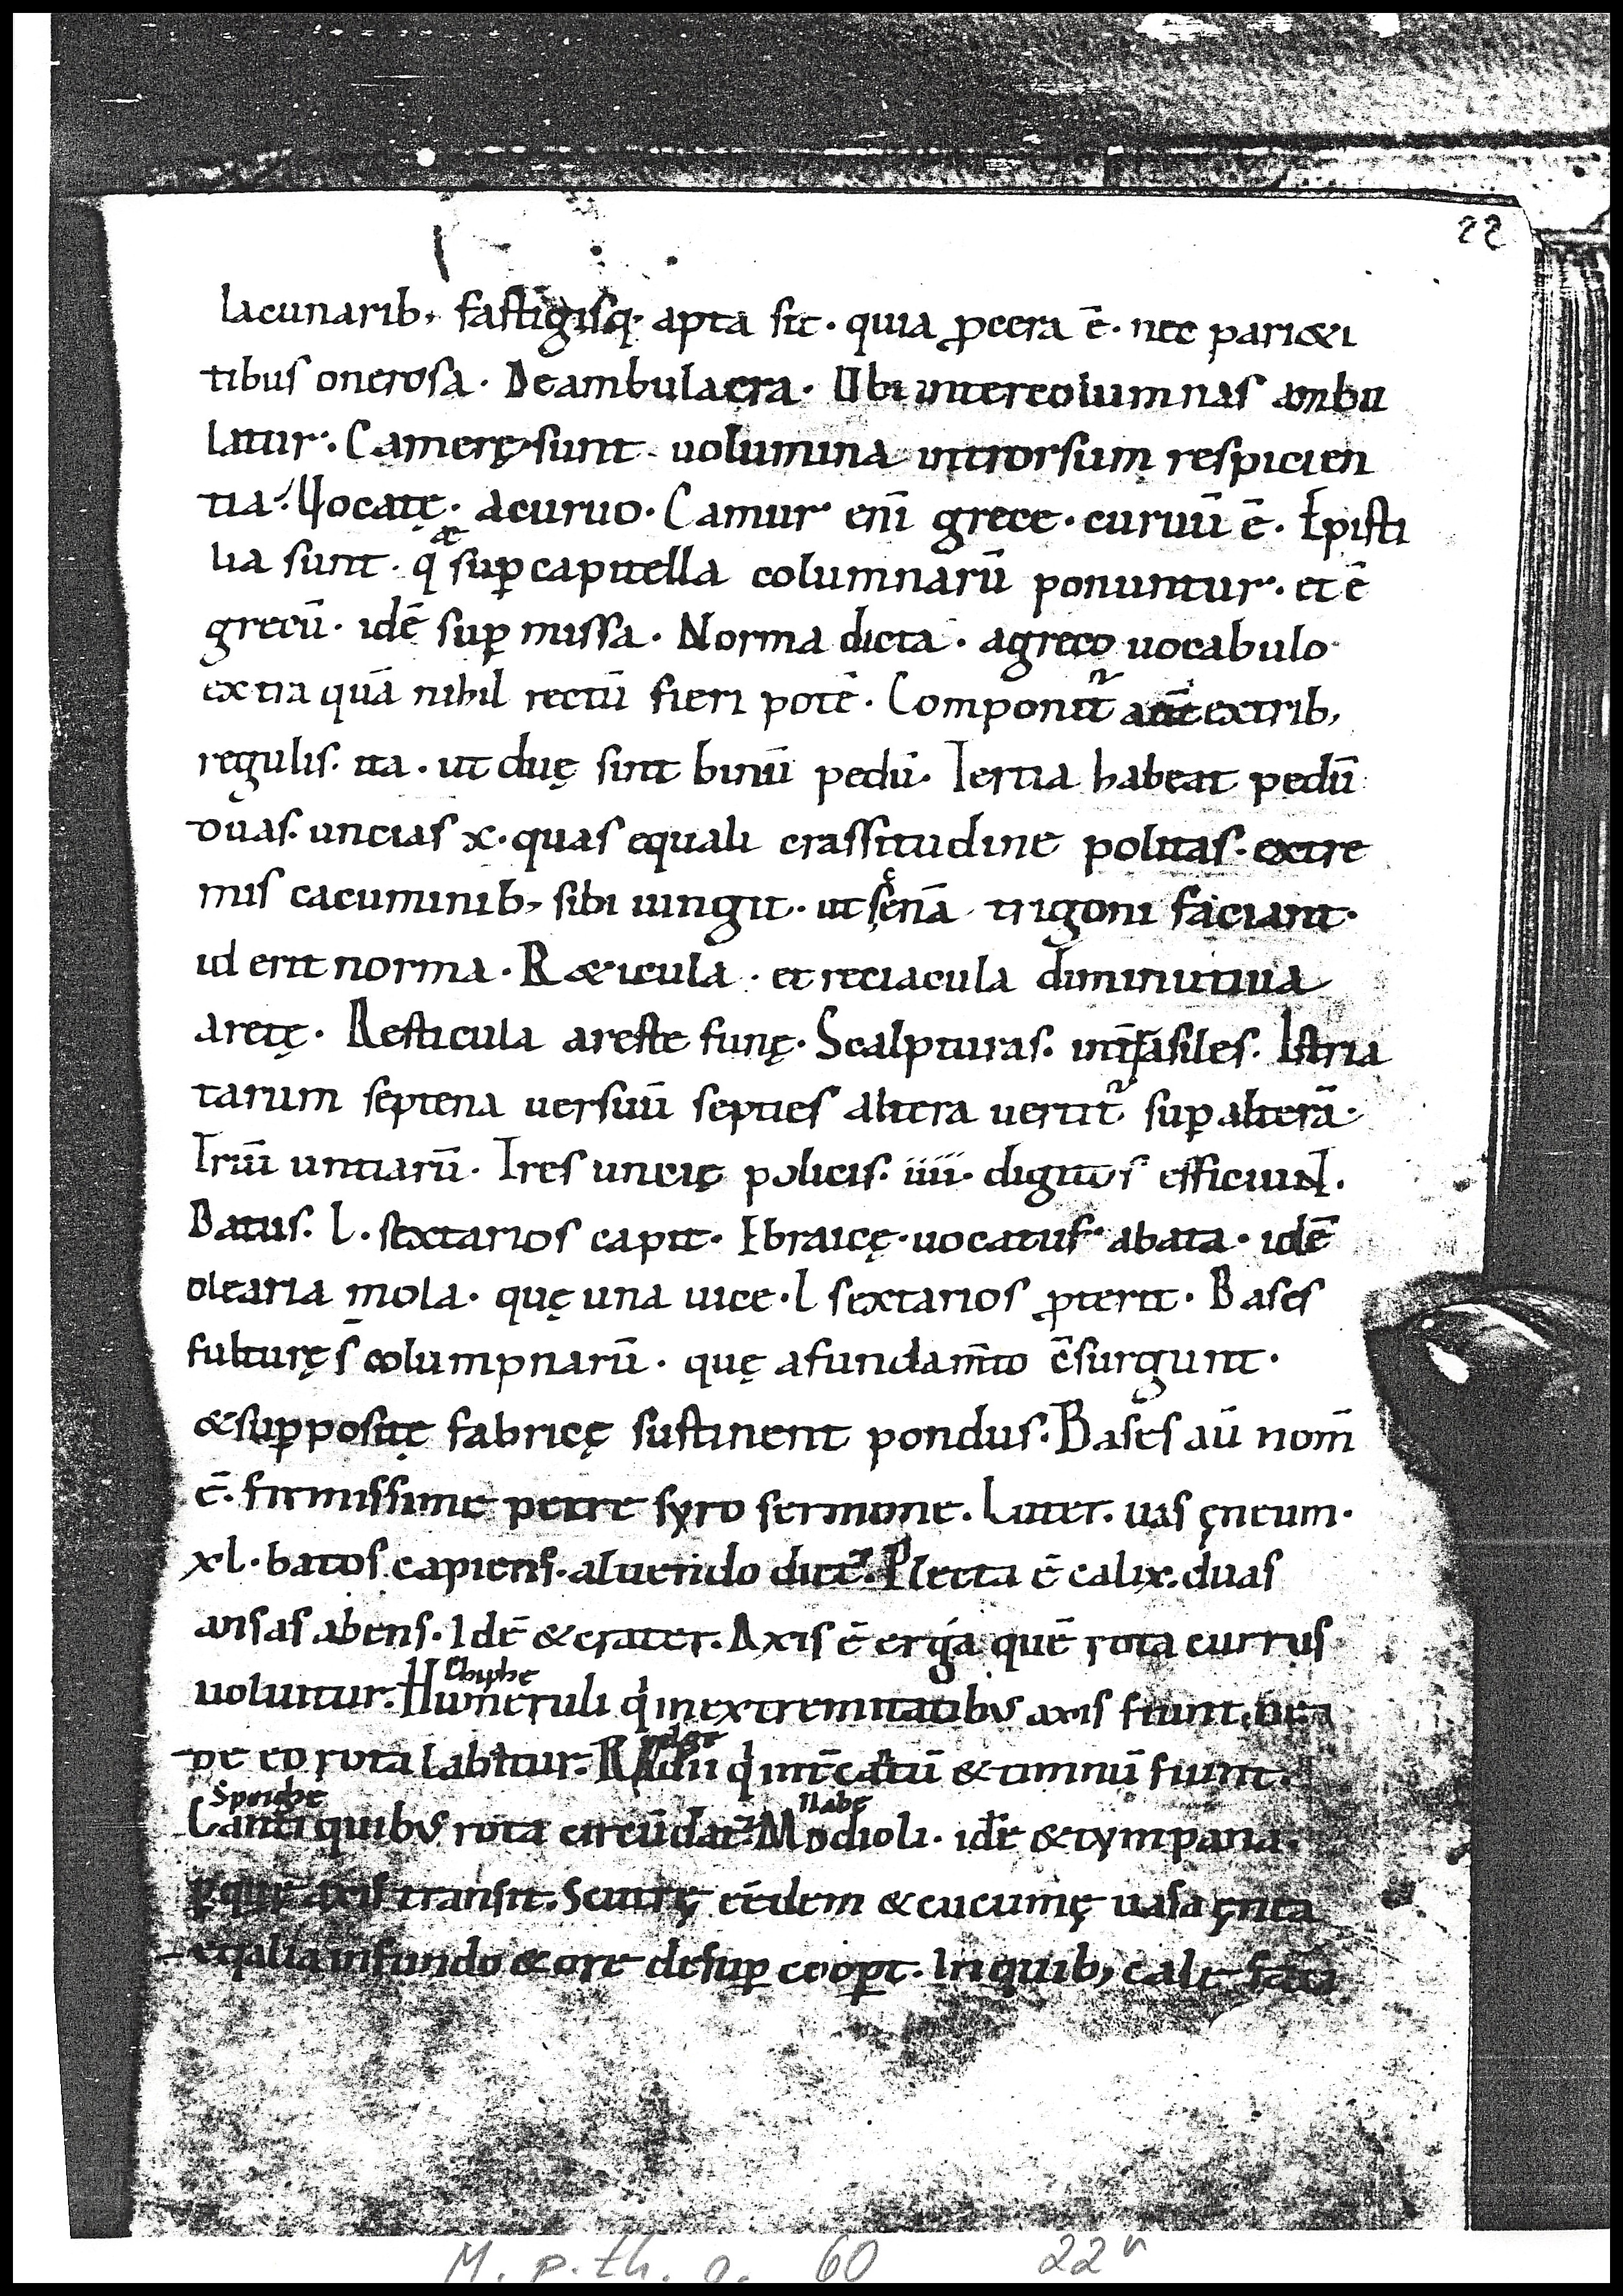 22
lacunarib, fastigisq· apta sit · quia ꝓcera ē · nec pari&i
tibus onerosa · Deambulacra · Ubi intercolumnas ambu
latur · Camerę · sunt uolumina introrsum respicien
tia · Uocatę · acuruo · Camur enī grece · curuū ē · Epist
lia sunt · q̄ suꝑ capitella columnarū ponuntur · et ē
æ
grecū · idē suꝑ missa · Norma dicta · agreco uocabulo
extra quā nihil rectū fieri potē · Componit᷑ aūt extrib,
regulis · ita · ut duę sint binū pedū · Tertia habeat pedū
duas · uncias x · quas equali crassitudine politas · extre
mis cacuminib, sibi iungit · ut scenā trigoni faciant ·
id erit norma · R&icula · et reciacula diminutiua
aretę · Resticula areste funę · Scalpturas · int̄rasiles · Istria
tarum septena uersuū septies altera uertit᷑ suꝑ alterā ·
Triū untiarū · Tres uncię policis · iiii · digitos efficiuNT ·
Batus · L · sextarios capit · Ebraicę · uocatus · abata · idē
olearia mola · quę una uice · L sextarios ꝓterit · Bases
fulturę s̄ columpnarū · quę afundam̄to c̄surgunt ·
&suꝑpositę fabricę sustinent pondus · Bases aū nom̄
ē · firmissime petre syro sermone · Luter · uas ęneum ·
xl · batos capiens · aluendo dict᷑ · Plecta ē calix · duas
ansas abens · Idē & crater · Axis ē erga quē rota currus
uoluitur · Humeruli q inextremitatibus axis fiunt, ne a
Chiphe
de eo rota labatur · Radii q int̄ catū & timnū fiunt ·
Canti quibus rota circūdat᷑ · Modioli · idē & tympana ·
Speiche
Nabe
ꝑ que axis transit · Scutrę eēdem & cucumę uasa ęnea
equalia in fundo & ore desuꝑ cooꝑt · Inquib, cale fati
M. p. th. o. 60 22r